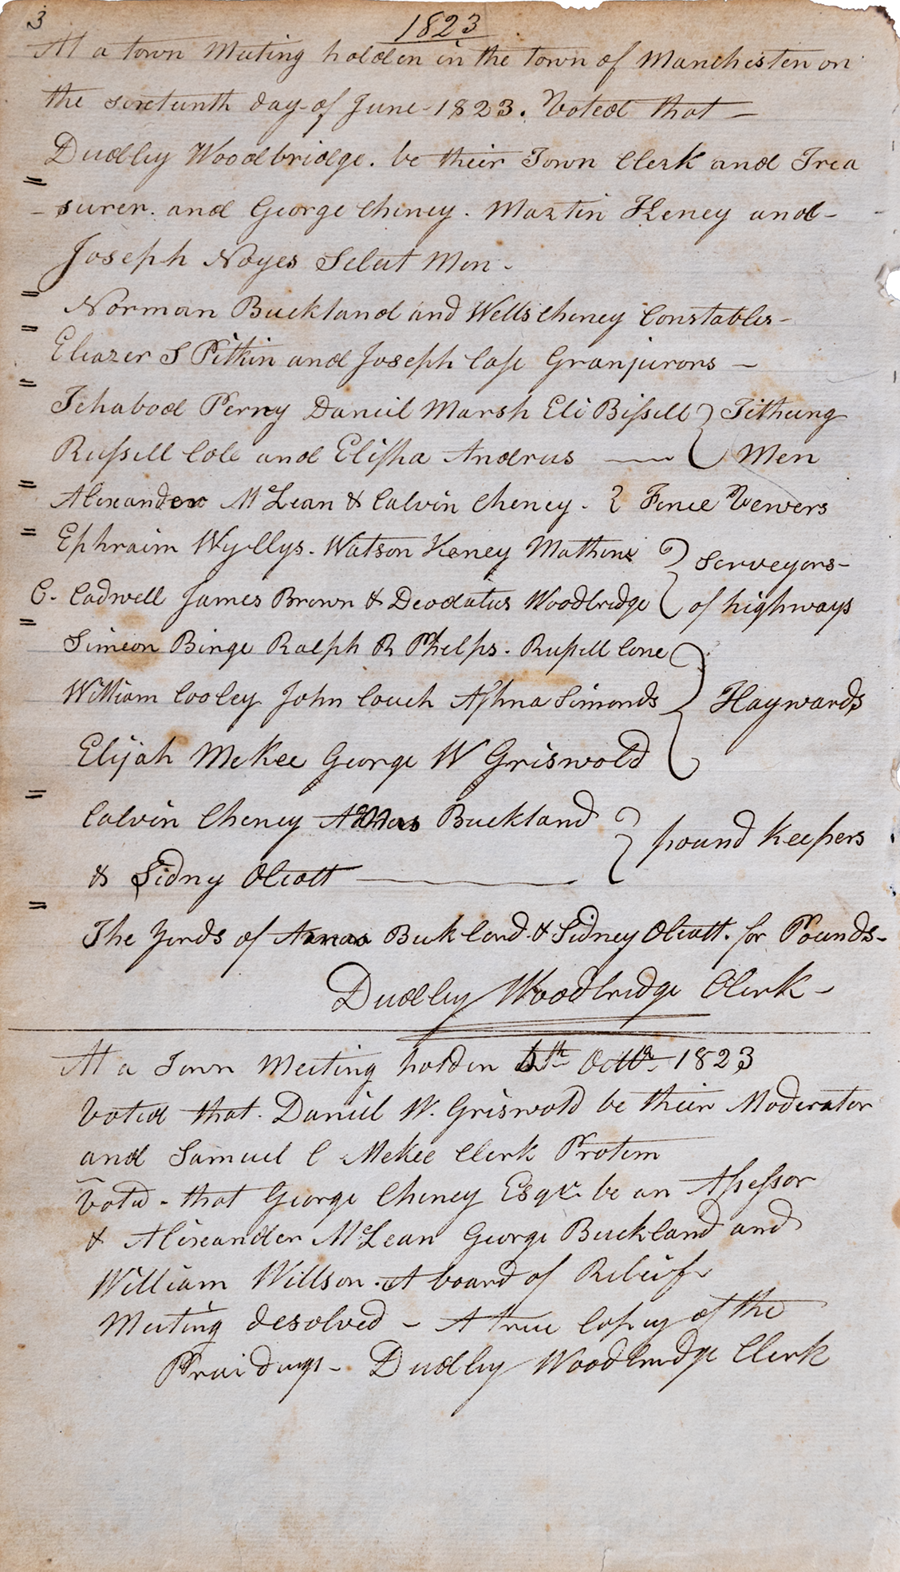 3
1823
At a town Meeting holden in the town of Manchester on
the sixteenth day of June 1823. Voted that —
Dudley Woodbridge. be their Town Clerk and Trea
- surer. and George Cheney. Martin Keney and -
Joseph Noyes Select Men.
Norman Buckland and Wells Cheney Constables -
Eleazer S Pitkin and Joseph Case Granjurors —
Ichabod Perry Daneil Marsh Eli Bissell } Tithung
Russell Cole and Elisha Andrus — } Men
Alexander McLean & Calvin Cheney. } Fence Vewers
Ephraim Wyllys. Watson Keney Mathew } Serveyors -
C. Cadwell James Brown & Deodatus Woodbridge } of highways
Simeon Binge Ralph R Phelps. Russell Cone
William Cooley John Couch Ashna Simonds } Haywards
Elijah McKee George W Griswold
Calvin Cheney Buckland } pound Keepers
& Sidny Olcott —
The Yerds of Buckland & Sidney Olcott. for Pounds -
Dudley Woodbridge Clerk -
At a Town Meeting holden Octbr 1823
Voted that. Daniel W. Griswold be their Moderator
and Samuel C McKee Clerk Protem
Voted - that George Cheney Esqr. be an Assessor
& Alexander McLean George Buckland and
William Willson. A board of Releif
Meeting desolved - A true Copey of the
Dudley Woodbridge Clerk